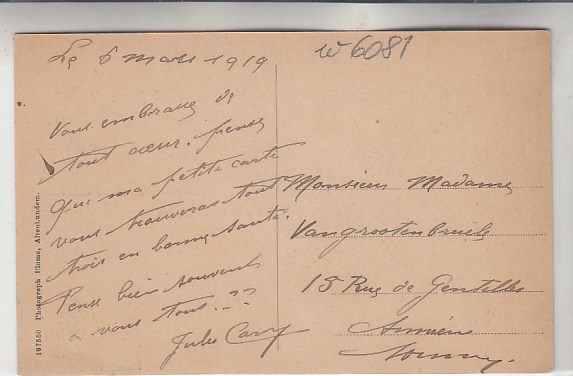 Le 6 mars 1919
w 6081
Vous embrasse de
tout cœur. pense
que ma petite carte
vous trouveras tout
trois en bonne santé.
Pense bien souvent
a vous tous. ??
Jules
Monsieur Madame
Vangrootenbruele
18 Rue de Gentelles
Amiens
Somme.
187550 Photograph Blome, Altenhundem.